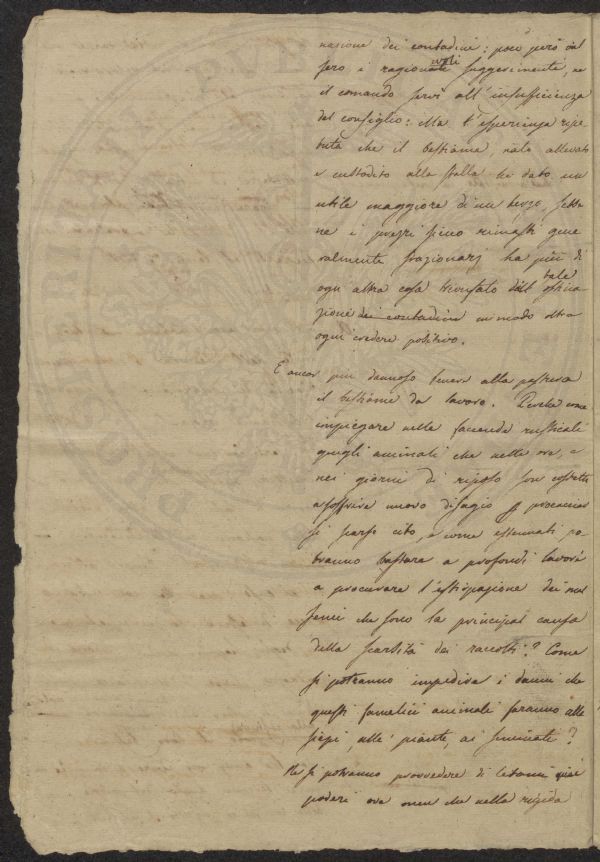 nazione dei contadini: poco però val
sero i ragionevoli suggerimenti, ne
il comando servì all'insufficienza
del consiglio: Ma l'esperienza ripe
tuta che il bestiame, nato allevato
e custodito alla stalla ha dato un
utile maggiore di un terzo, sebbe
ne i prezzi sieno rimasti gene
ralmente stazionarj ha più di
ogni altra cosa trionfato di tale ostina
zione dei contadini in modo oltre
ogni credere positivo.
E ancor più dannoso tenere alla pastura
il bestiame da lavoro. Perchè come
impiegare nelle faccende rusticali
quegli animali che nelle ore, e
nei giorni di riposo son costretti
a soffrire nuovo disagio p procacciar
si scarso cibo, e come estenuati po
tranno bastare a profondi lavori
a procurare l'estirpazione dei
semi che sono la principal causa
della scarsità dei raccolti? Come
si potranno impedire i danni che
questi famelici animali faranno alle
siepi, alle piante, ai seminati?
Ne si potranno provvedere di letami quei
poderi ove non che nella rigida